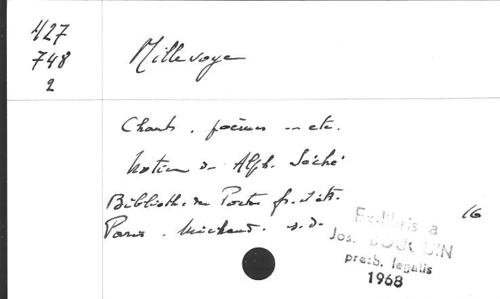 427
748
2
Millevoye
Chants, poèmes -- etc.
Notice de Alph. Séché
Biblioth. des Poètes fr. et étr.
Paris. Michaud. s.d.
16
Ex-libris a
Jos. BOUQUIN
presb. legatis
1968